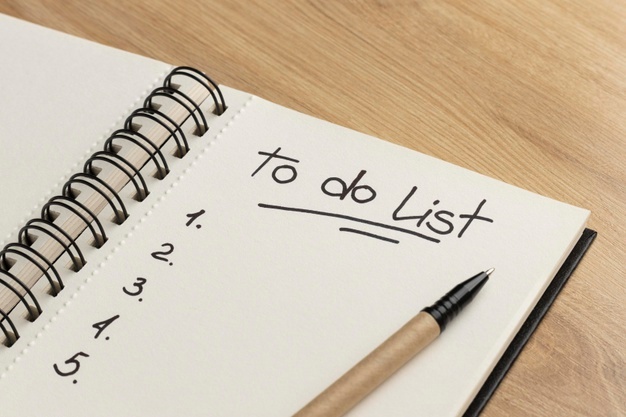 To do List
1.
2.
3.
4.
5.